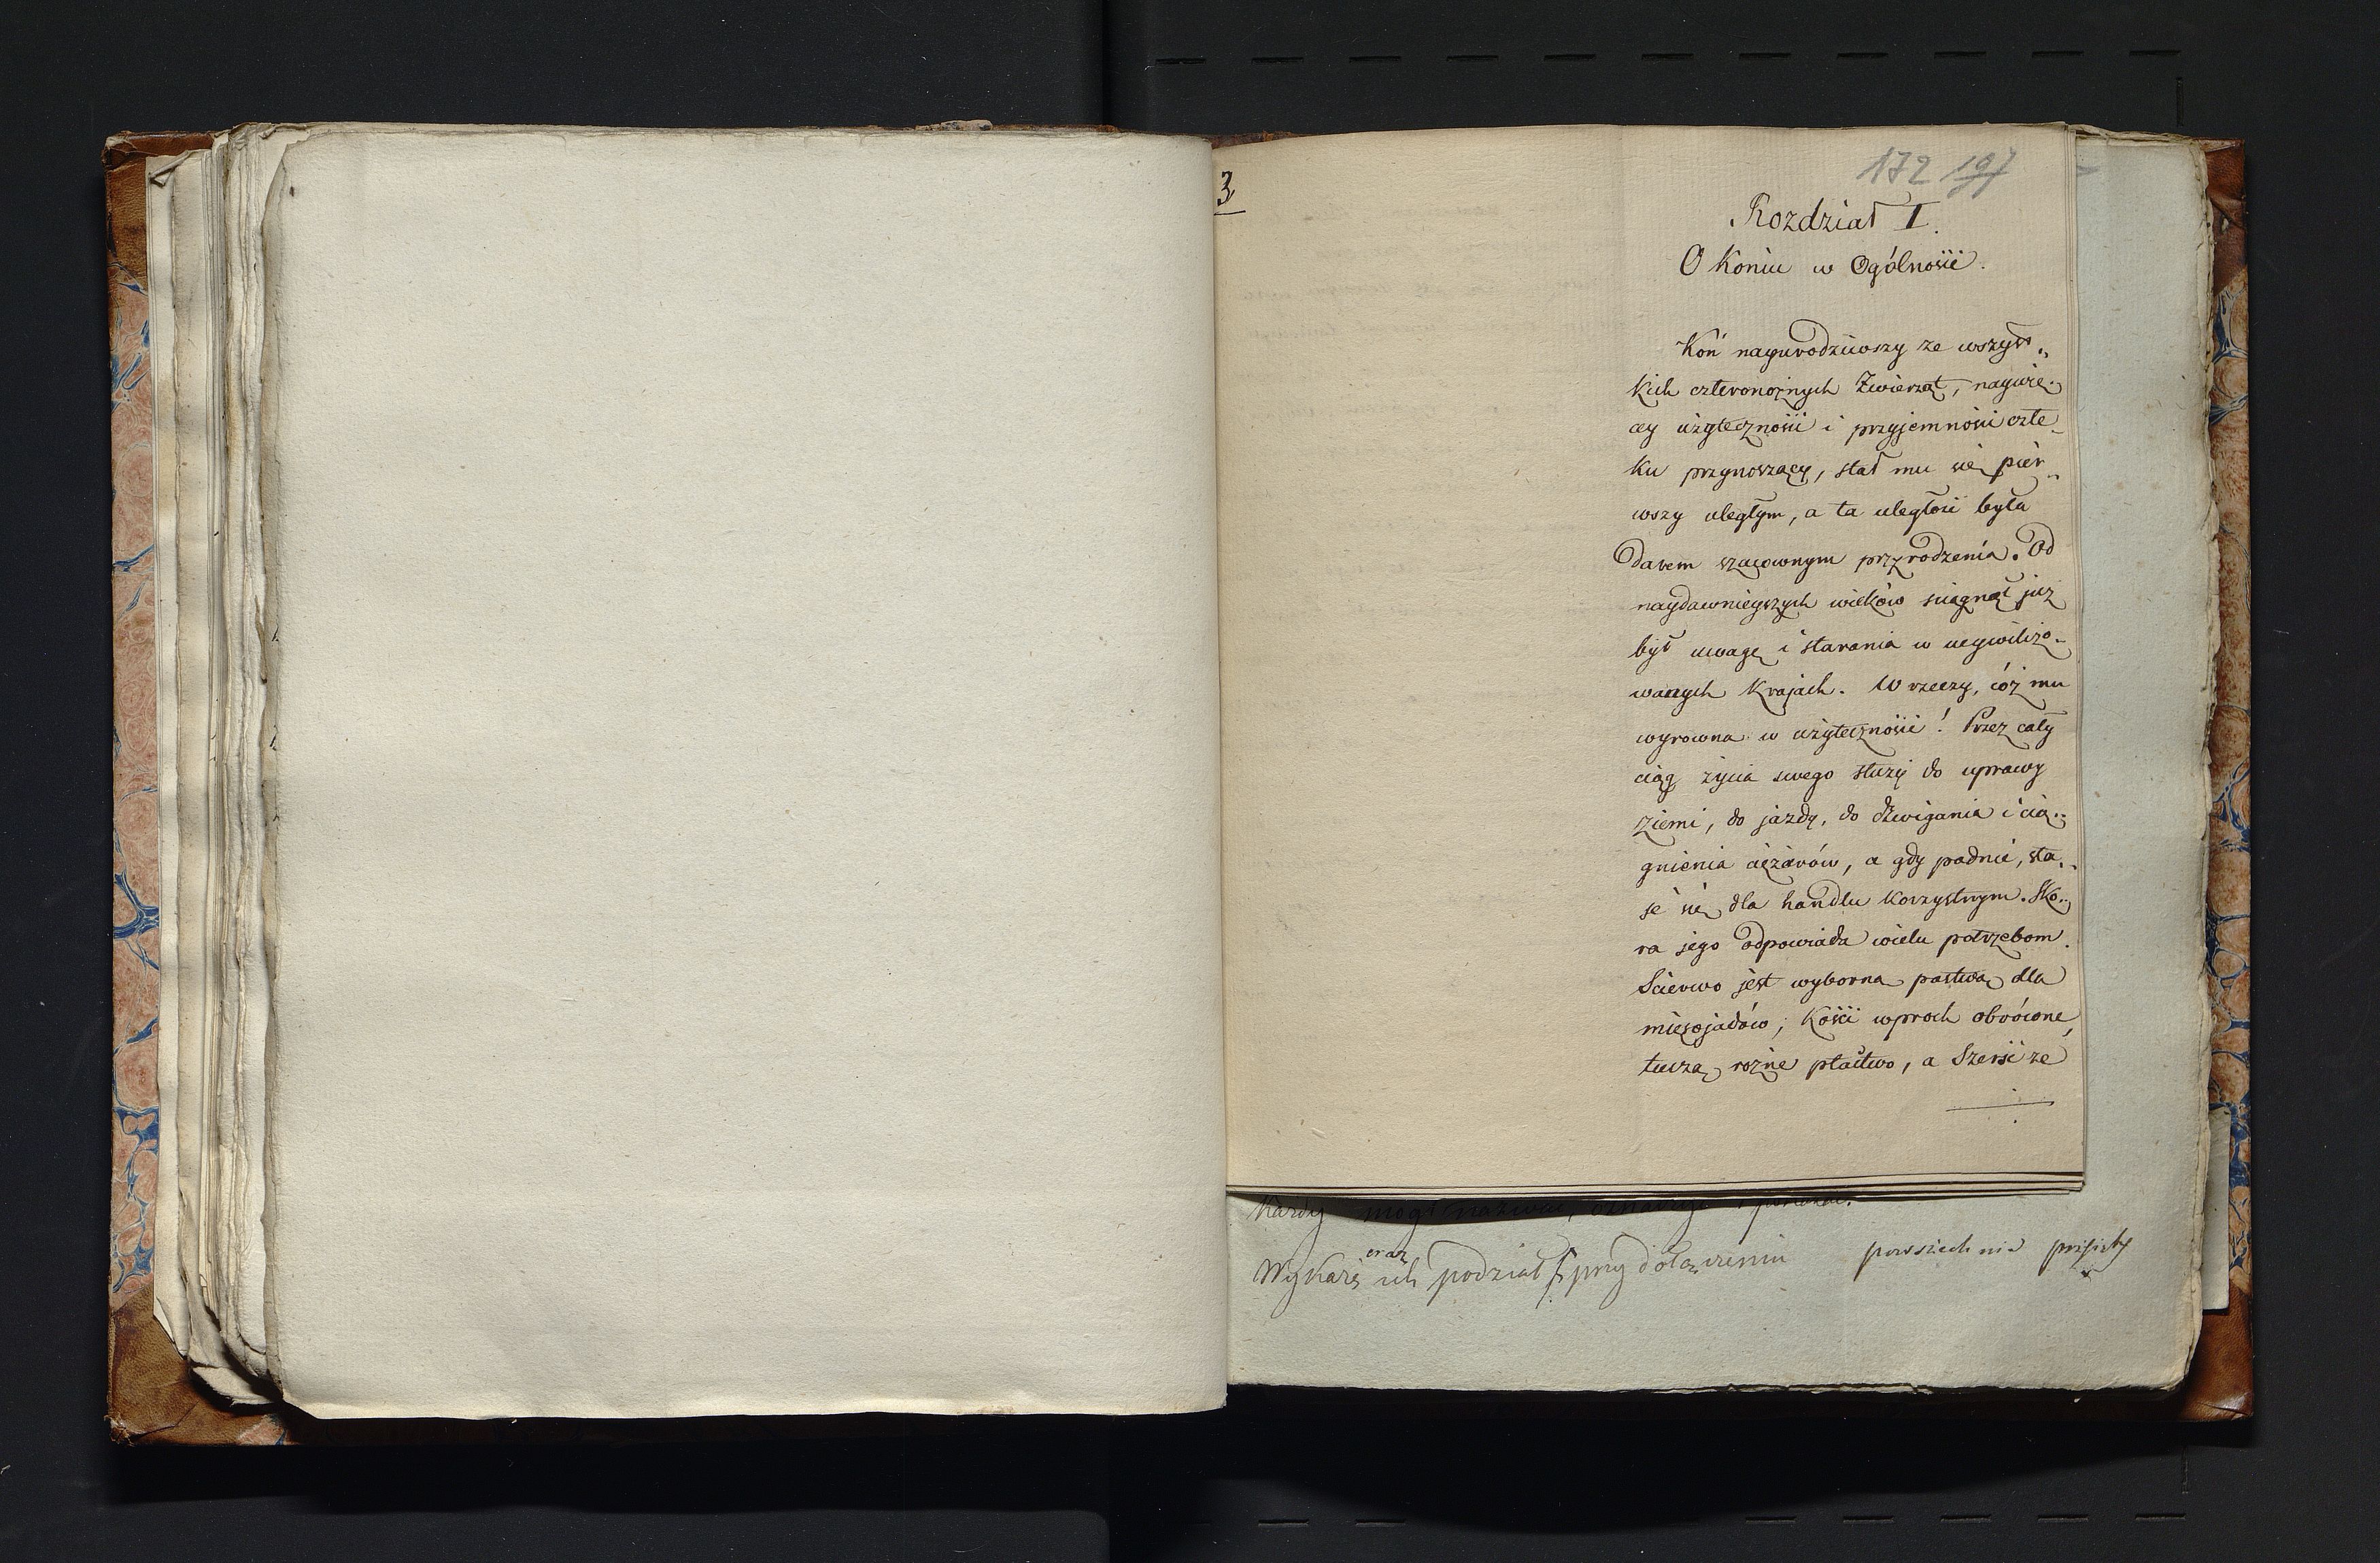 3
172 197
Rozdział I.
O Koniu w Ogólności.
Koń nayurodziwszy ze wszyst„
kich czteronożnych Zwierząt, naywię„
cey użyteczności i przyjemności człe„
ku przynoszący, stał mu się pier„
wszy uległym, a ta uległość była
darem szacownym przyrodzenia. Od
naydawnieyszych wieków sciągnął już
był uwagę i starania w ucywilizo„
wanych Krajach. W rzeczy, cóż mu
wyrowna w użyteczności! Przez cały
ciąg życia swego służy do uprawy
ziemi, do jazdy, do dźwigania i cią„
gnienia ciężarów, a gdy padnie, sta„
je się dla handlu korzystnym. Sko„
ra jego odpowiada wielu potrzebom.
Scierwo jest wyborną pastwą dla
mięsojadów; Kości w proch obrócone,
tuczą rożne ptactwo, a Szerść ze
Każdy mógł nazwać,
oraz
Wykaże ich podział przy dołączeniu powszechnie przyjęty